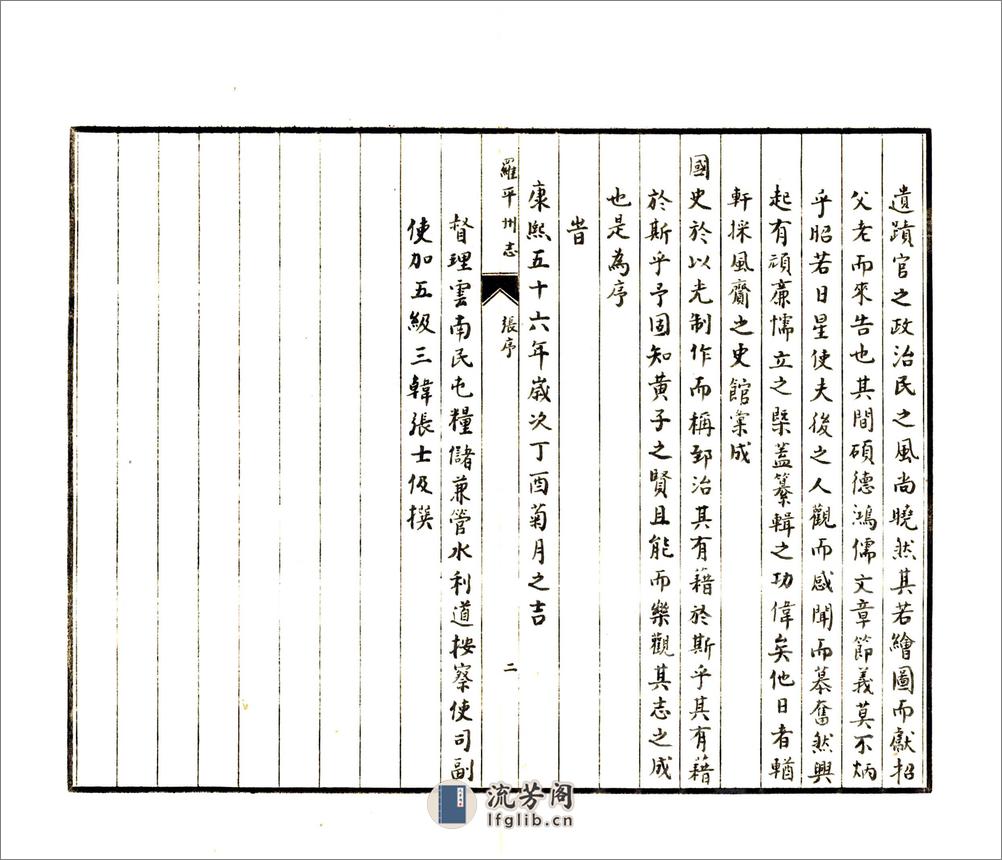 遺蹟官之政治民之風尚曉然其若繪圖而獻招
父老而來告也其間碩德鴻儒文章節義莫不炳
乎昭若日星使夫後之人觀而感聞而慕奮然興
起有頑亷懦立之槩蓋纂輯之功偉矣他日者輶
軒採風齎之史館彙成
國史於以光制作而稱郅治其有藉於斯乎其有藉
於斯乎予固知黄子之賢且能而樂觀其志之成
也是為序
旹
康熙五十六年嵗次丁酉菊月之吉
羅平州志
張序
二
督理雲南民屯糧儲兼管水利道按察使司副
使加五級三韓張士伋撰
流芳阁
lfglib.cn